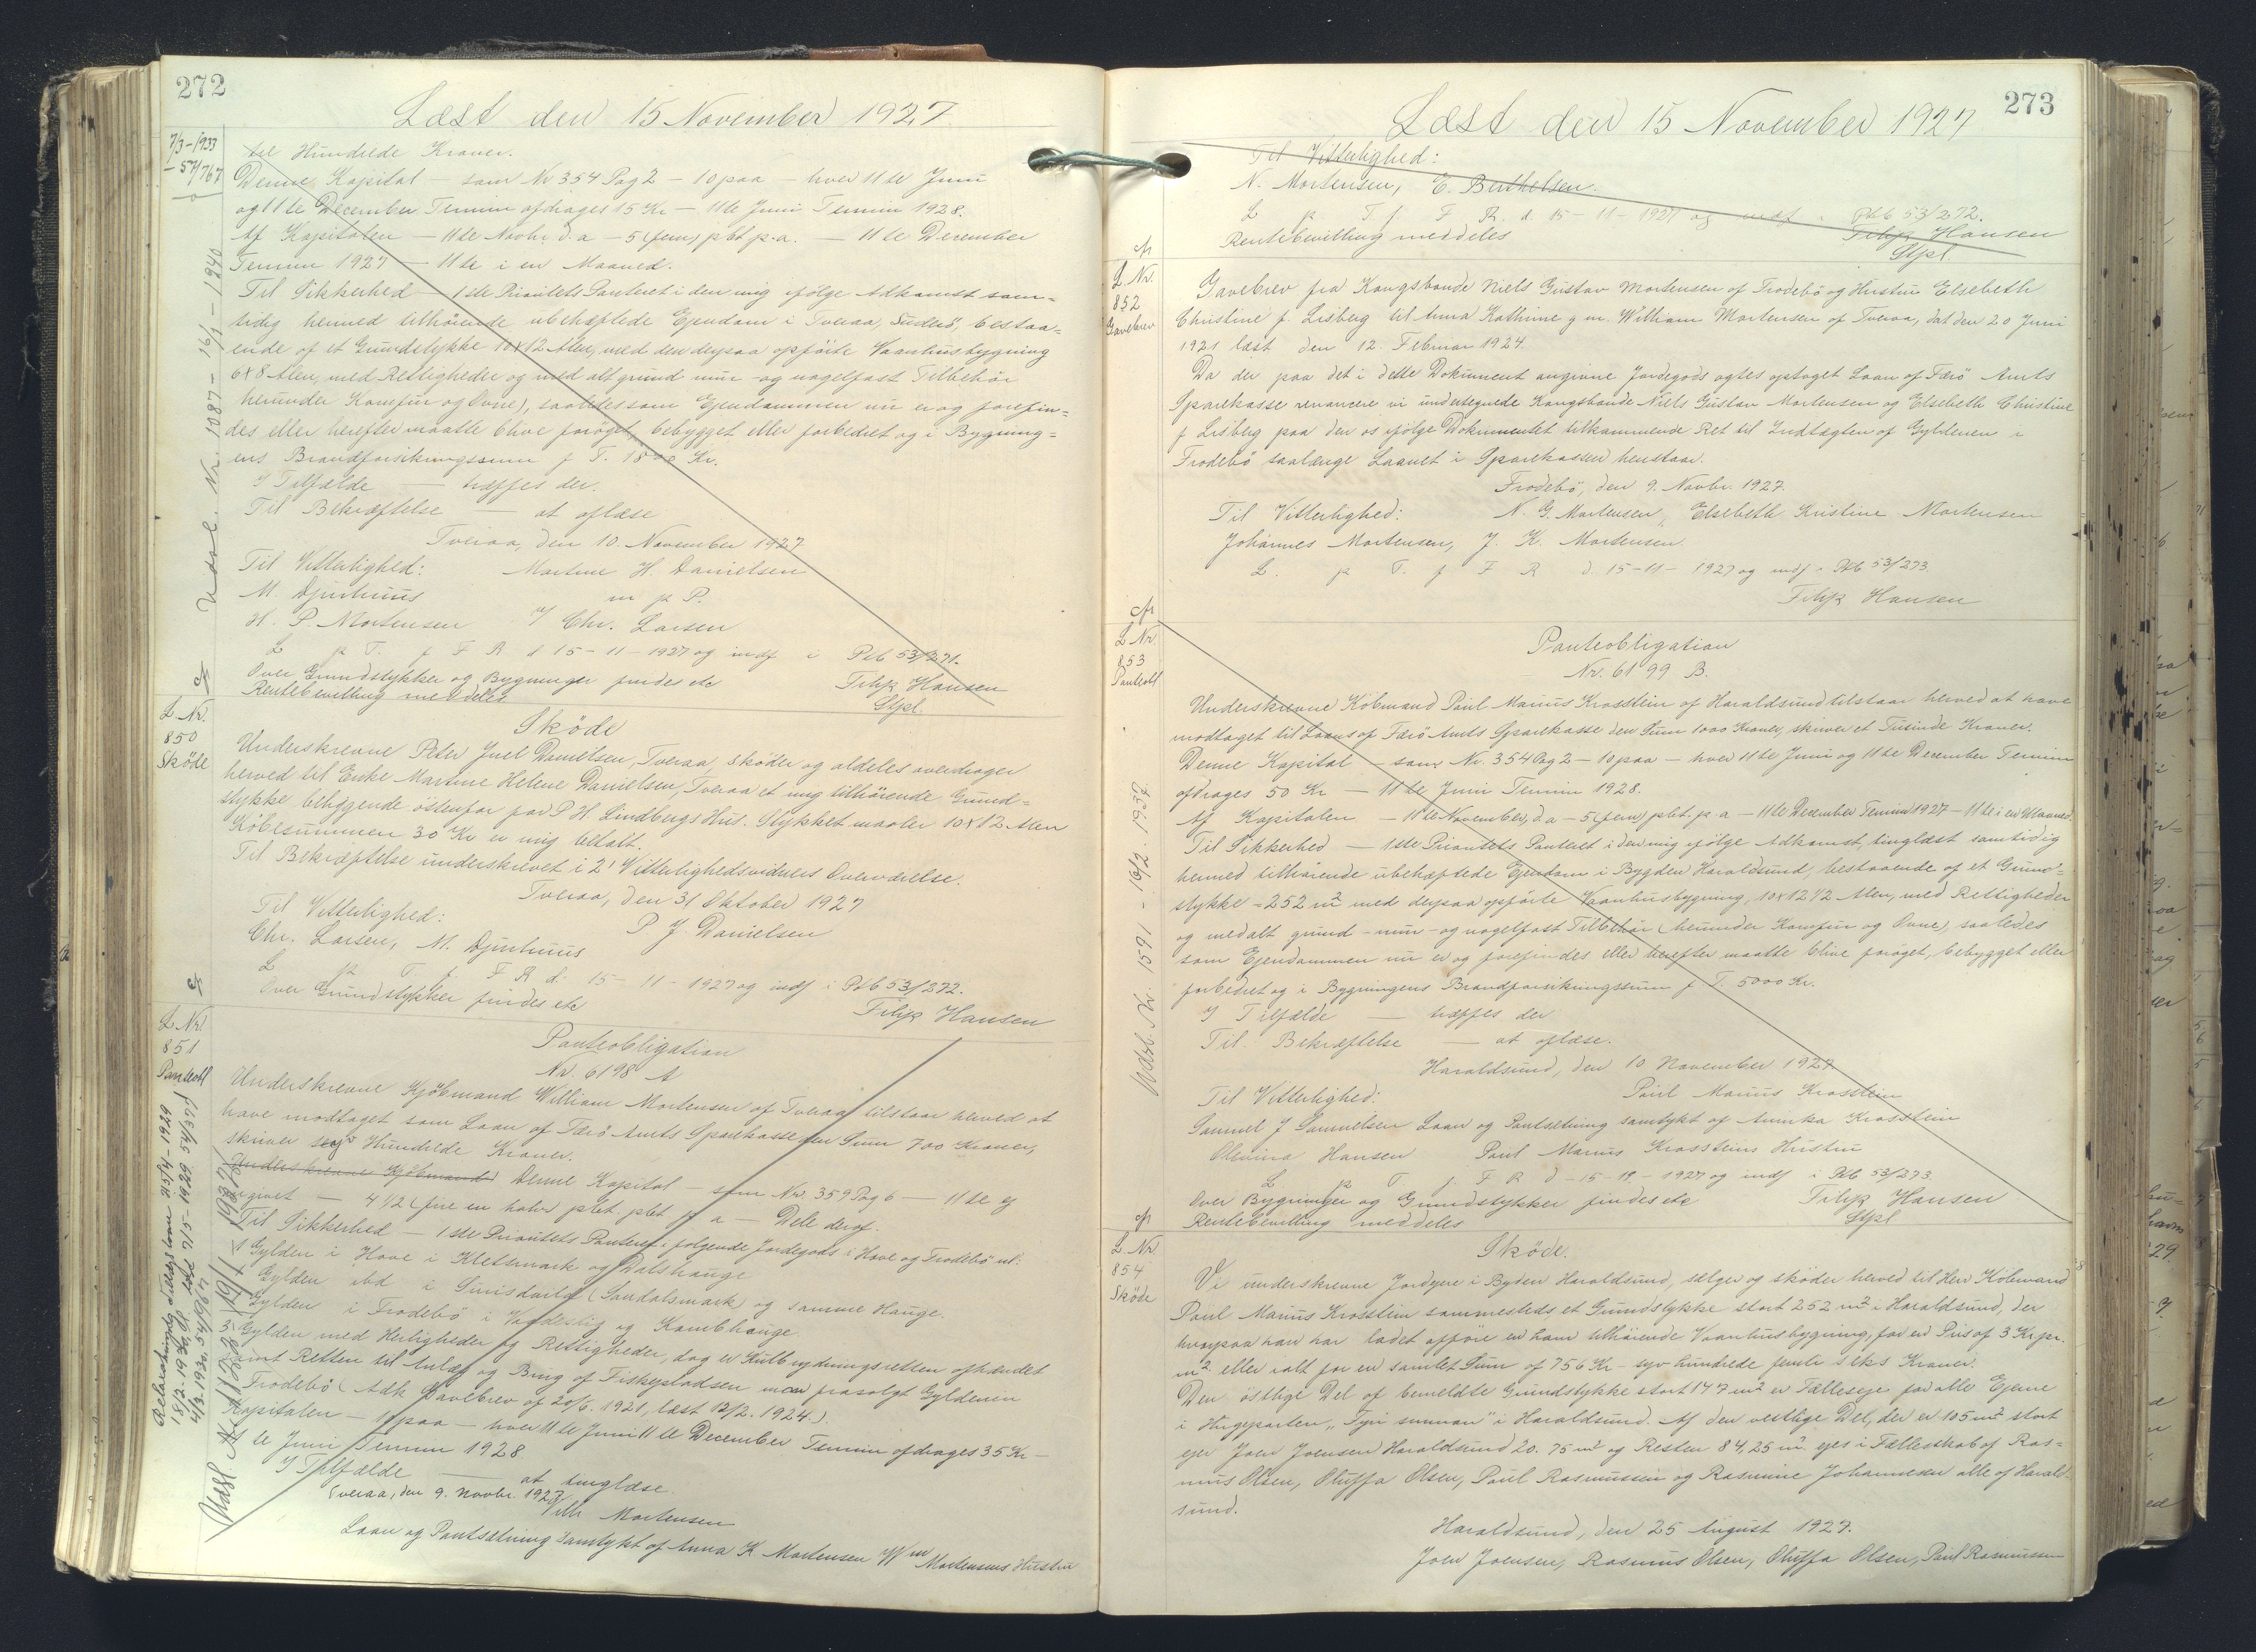 272
Læst den 15 November 1927
7/3-1933
- 57/767
Udsl. Nr. 1087 - 16/1 - 1940
tre Hundrede Kroner.
Denne Kapital — som Nr 354 Pag 2 — 10 paa — hver 11te Juni
og 11te December Termin afdrages 15 Kr — 11te Juni Termin 1928.
Af Kapitalen — 11te Novbr d. a — 5 (fem) pCt p. a. — 11te December
Termin 1927 — 11te i en Maaned.
Til Sikkerhed — 1ste Prioritets Panteret i den mig ifølge Adkomst sam=
tidig hermed tilhørende ubehæftede Ejendom i Tveraa, Suderö, bestaa=
ende af et Grundstykke 10x12 Alen, med den derpaa opførte Vaanhusbygning
6x8 Alen, med Rettigheder og med alt grund- mur- og nagelfast Tilbehör
herunder Komfur og Ovne), saaledes som Ejendommen nu er og forefin=
des eller herefter maatte blive forøget, bebygget eller forbedret og i Bygning=
ens Brandforsikringssum p. T. 1800 Kr.
I Tilfælde — træffes der.
Til Bekræftelse — at aflæse
Tveraa, den 10. November 1927
Til Vitterlighed: Martine H. Danielsen
M. Djurhuus m p P.
H. P. Mortensen v/ Chr. Larsen
L p T. f F R d 15-11-1927 og indf i Ptb 53/271.
Over Grundstykker og Bygninger findes etc Filip Hansen
Rentebevilling meddeles Stpl.
cfr
L. Nr.
850
Sköde
Sköde
Underskrevne Peter Juel Danielsen, Tveraa, sköder og aldeles overdrager
herved til Enke Martine Helene Danielsen, Tveraa et mig tilhörende Grund=
stykke beliggende östenfor for P. H. Lindbergs Hus. Stykket maaler 10x12 Alen
Köbesummen 30 Kr er mig betalt.
Til Bekræftelse underskrevet i 2' Vitterlighedsvidners Overværelse.
Tveraa, den 31 Oktober 1927
Til Vitterlighed: P. J Danielsen
Chr. Larsen, M. Djurhuus
L p T. f. F R d. 15-11-1927 og indf i Ptb 53/272.
Over Grundstykker findes etc Filip Hansen
cfr
L Nr.
851
Panteobl
Panteobligation
Nr. 6198 A
Underskrevne Kjöbmand William Mortensen af Tveraa tilstaar herved at
have modtaget som Laan af Færö Amts Sparekasse den Sum 700 Kroner,
skriver syv Hundrede Kroner.
Underskrevne Kjöbmand Denne Kapital — som Nr. 359 Pag 6 — 11te ej
angivet — 4 1/2 (fire en halv) pCt. p. a — Dele deraf.
Til Sikkerhed — 1ste Prioritets Panteret i følgende Jordegods i Hove og Frodebö nl:
1 Gylden i Hove i Klettsmark og Dalshauge
Gylden ibd i (Sandalsmark) og samme Hauge
Gylden i Frodebö i og Kambhauge
3 Gylden med Herligheder og Rettigheder, dog er Kulbrydningsretten afhændet
samt Retten til Anlæg og Brug af Fiskepladsen men frasolgt Gylden in
Frodebö (Adk Gavebrev af 20/6. 1921, læst 12/2. 1924.).
Kapitalen — 10 paa — hver 11te Juni 11te December Termin afdrages 35 Kr —
11te Juni Termin 1928
I Tilfælde — at tinglæse.
Tveraa, den 9. Novbr. 1927
Wilh Mortensen
Laan og Pantsætning samtykt af Anna K. Mortensen Wm Mortensens Hustru
25/4-1929
273
Læst den 15 November 1927
Til Vitterlighed:
N. Mortensen, E. Berthelsen.
L p T. f. F R. d. 15-11-1927 og indf i Ptb 53/272.
Rentebevilling meddeles Filip Hansen
Stpl.
cfr
L. Nr.
852
Gavebrev
Gavebrev fra Kongsbonde Niels Gustav Mortensen af Frodebö og Hustru Elsebeth
Christine f. Lisberg til Anna Kathrine g. m. William Mortensen af Tveraa, dat den 20 Juni
1921 læst den 12. Februar 1924.
Da der paa det i dette Dokument angivne Jordegods agtes optaget Laan af Færö Amts
Sparekasse renoncere vi undertegnede Kongsbonde Niels Gustav Mortensen og Elsebeth Christine
f Lisberg paa den os ifölge Dokumentet tilkommende Ret til Indtægten af Gyldenen i
Frodebö saalænge Laanet i Sparekassen henstaar.
Frodebö, den 9. Novbr. 1927.
Til Vitterlighed: N. G. Mortensen, Elsebeth Kristine Mortensen
Johannes Mortensen, J. K. Mortensen.
L. p T. f F R d 15-11-1927 og indf i Ptb 53/273.
Filip Hansen
cfr
L Nr.
853
Panteobl
Udsl. Nr. 1591 - 16/2. 1957
Panteobligation
Nr. 6199 B.
Underskrevne Köbmand Poul Marius Krosstein af Haraldsund tilstaar herved at have
modtaget til Laans af Færö Amts Sparekasse den Sum 1000 Kroner, skriver et Tusinde Kroner.
Denne Kapital — som Nr. 354 Pag 2 — 10 paa — hver 11te Juni og 11te December Termin
afdrages 50 Kr — 11te Juni Termin 1928.
Af Kapitalen — 11te November, d. a — 5 (fem) pCt. p. a — 11te December Termin 1927 — 11te i en Maaned.
Til Sikkerhed — 1ste Prioritets Panteret i den mig ifölge Adkomst, tinglæst samtidig
hermed tilhörende ubehæftede Ejendom i Bygden Haraldsund, bestaaende af et Grund=
stykke = 252 m² med derpaa opförte Vaanhusbygning, 10x12 1/2 Alen, med Rettigheder
og med alt grund- mur- og nagelfast Tilbehör (herunder Komfur og Ovne), saaledes
som Ejendommen nu er og forefindes eller herefter maatte blive foröget, bebygget eller
forbedret og i Bygningens Brandforsikringssum p. T. 5000 Kr.
I Tilfælde — træffes der
Til Bekræftelse — at aflæse.
Haraldsund, den 10 November 1927
Til Vitterlighed: Poul Marius Krosstein
Samuel J Samuelsen Laan og Pantsætning samtykt af Annika Krosstein
Olevina Hansen Poul Marius Krossteins Hustru
L. p T. f. F R d-15-11-1927 og indf i Ptb 53/273.
Over Bygninger og Grundstykker findes etc Filip Hansen
Rentebevilling meddeles Stpl.
cfr
L. Nr.
854
Sköde
Sköde.
Vi underskrevne Jordejere i Byden Haraldsund, sælger og sköder herved til Herr Köbmand
Poul Marius Krosstein sammesteds et Grundstykke stort 252 m² i Haraldsund, der
hvorpaa han har ladet opföre en ham tilhörende Vaanhusbygning, for en Pris af 3 Kr pr.
m² eller ialt for en samlet Sum af 756 Kr — syv hundrede femti seks Kroner.
Den östlige Del af bemeldte Grundstykke stort 147 m² er Fælleseje for alle Ejerne
i Hugeparten „Fyri sunnan" i Haraldsund. Af den vestlige Del, der er 105 m² stort
ejer Joen Joensen Haraldsund 20.75 m² og Resten 84,25 m² ejes i Fællesskab af Ras=
mus Olsen, Oluffa Olsen, Poul Rasmussen og Rasmine Johannesen alle af Harald-
sund.
Haraldsund, den 25 August 1927.
Joen Joensen, Rasmus Olsen, Oluffa Olsen, Poul Rasmussen